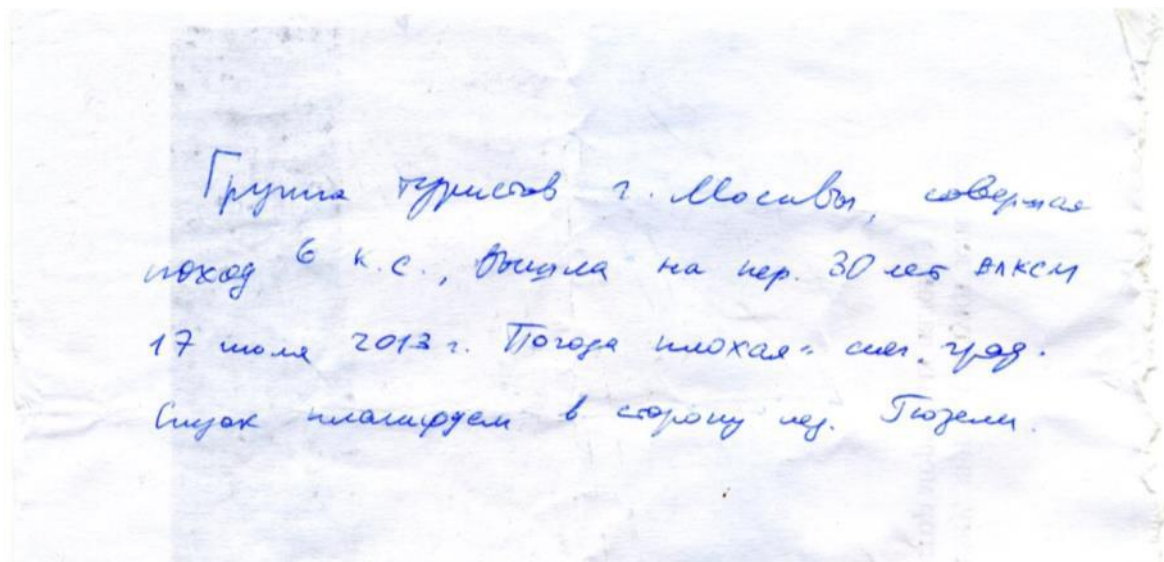 Группа туристов г. Москвы, совершая
поход 6 к.с., вышла на пер. 30 лет ВЛКСМ
17 июля 2013 г. Погода плохая: снег, град.
Спуск планируем в сторону лед. Гюзели.